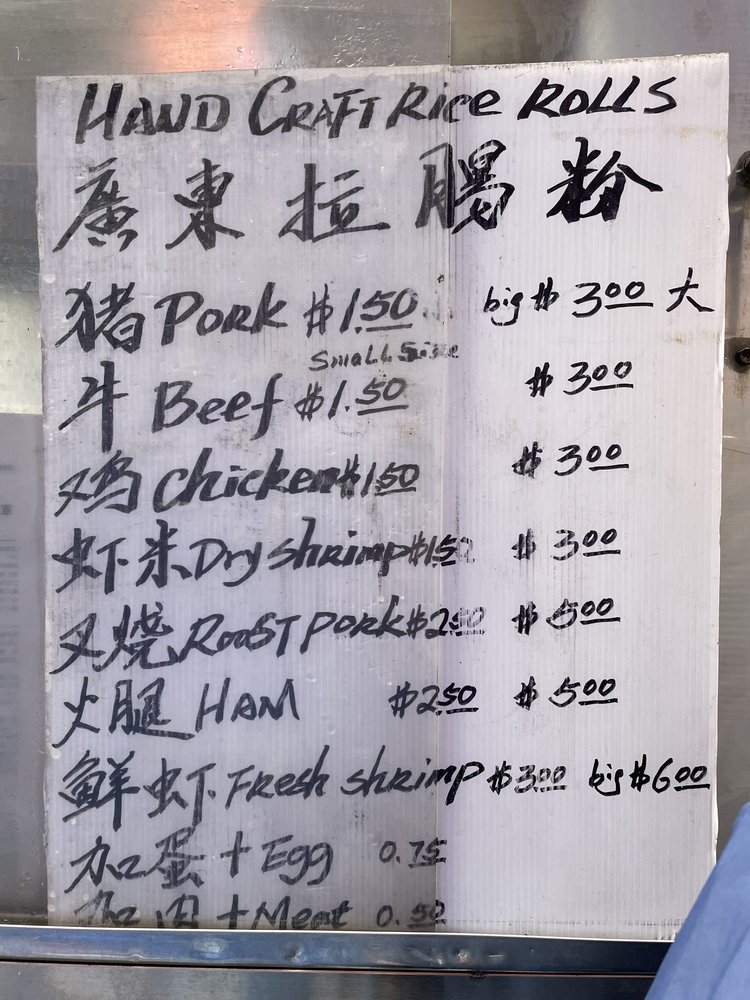 HAND CRAFT Rice ROLLS
廣東拉腸粉
猪 Pork $1.50 big $3.00 大
Small Size
牛 Beef $1.50 $3.00
鸡 Chicken $1.50 $3.00
虾米 Dry shrimp $1.50 $3.00
叉烧 ROAST PORK $2.50 $5.00
火腿 HAM $2.50 $5.00
鲜虾 Fresh shrimp $3.00 big $6.00
加蛋 + Egg 0.75
加肉 + Meat 0.50